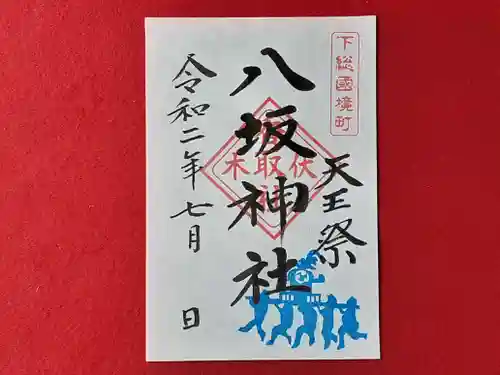 下総國境町
天王祭
八坂神社
伏木
香取
令和二年七月 日